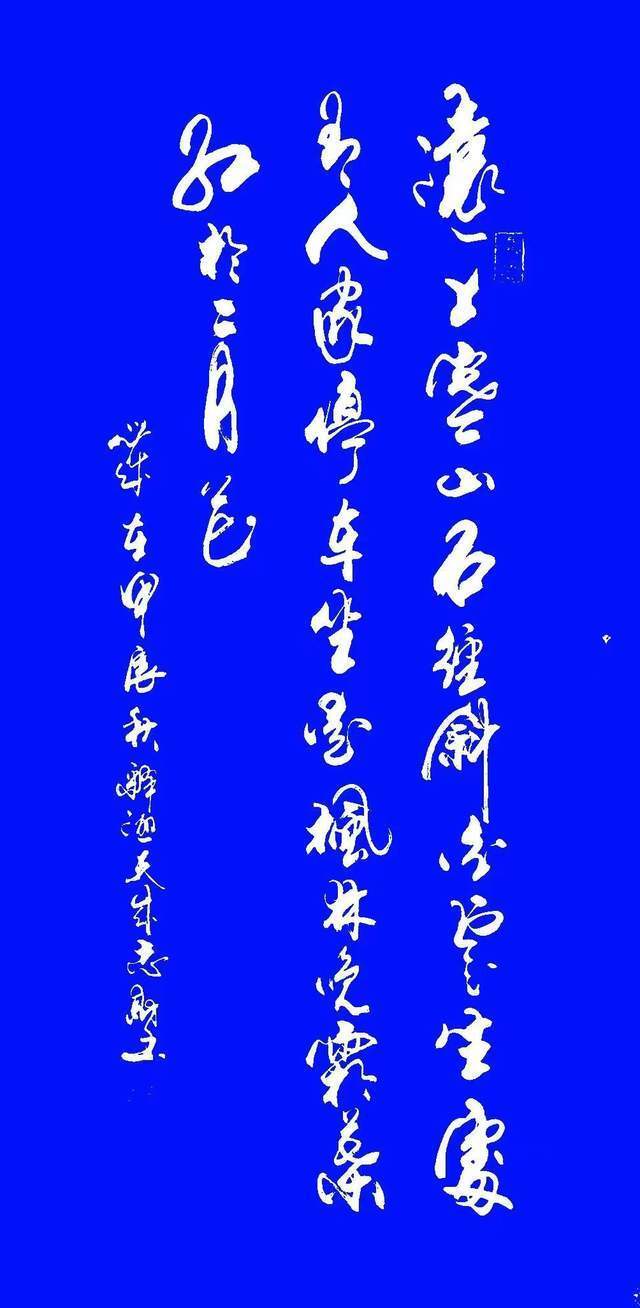 遠上寒山石徑斜白雲生處
有人家停車坐愛楓林晚霜葉
紅於二月花
歲在甲辰秋